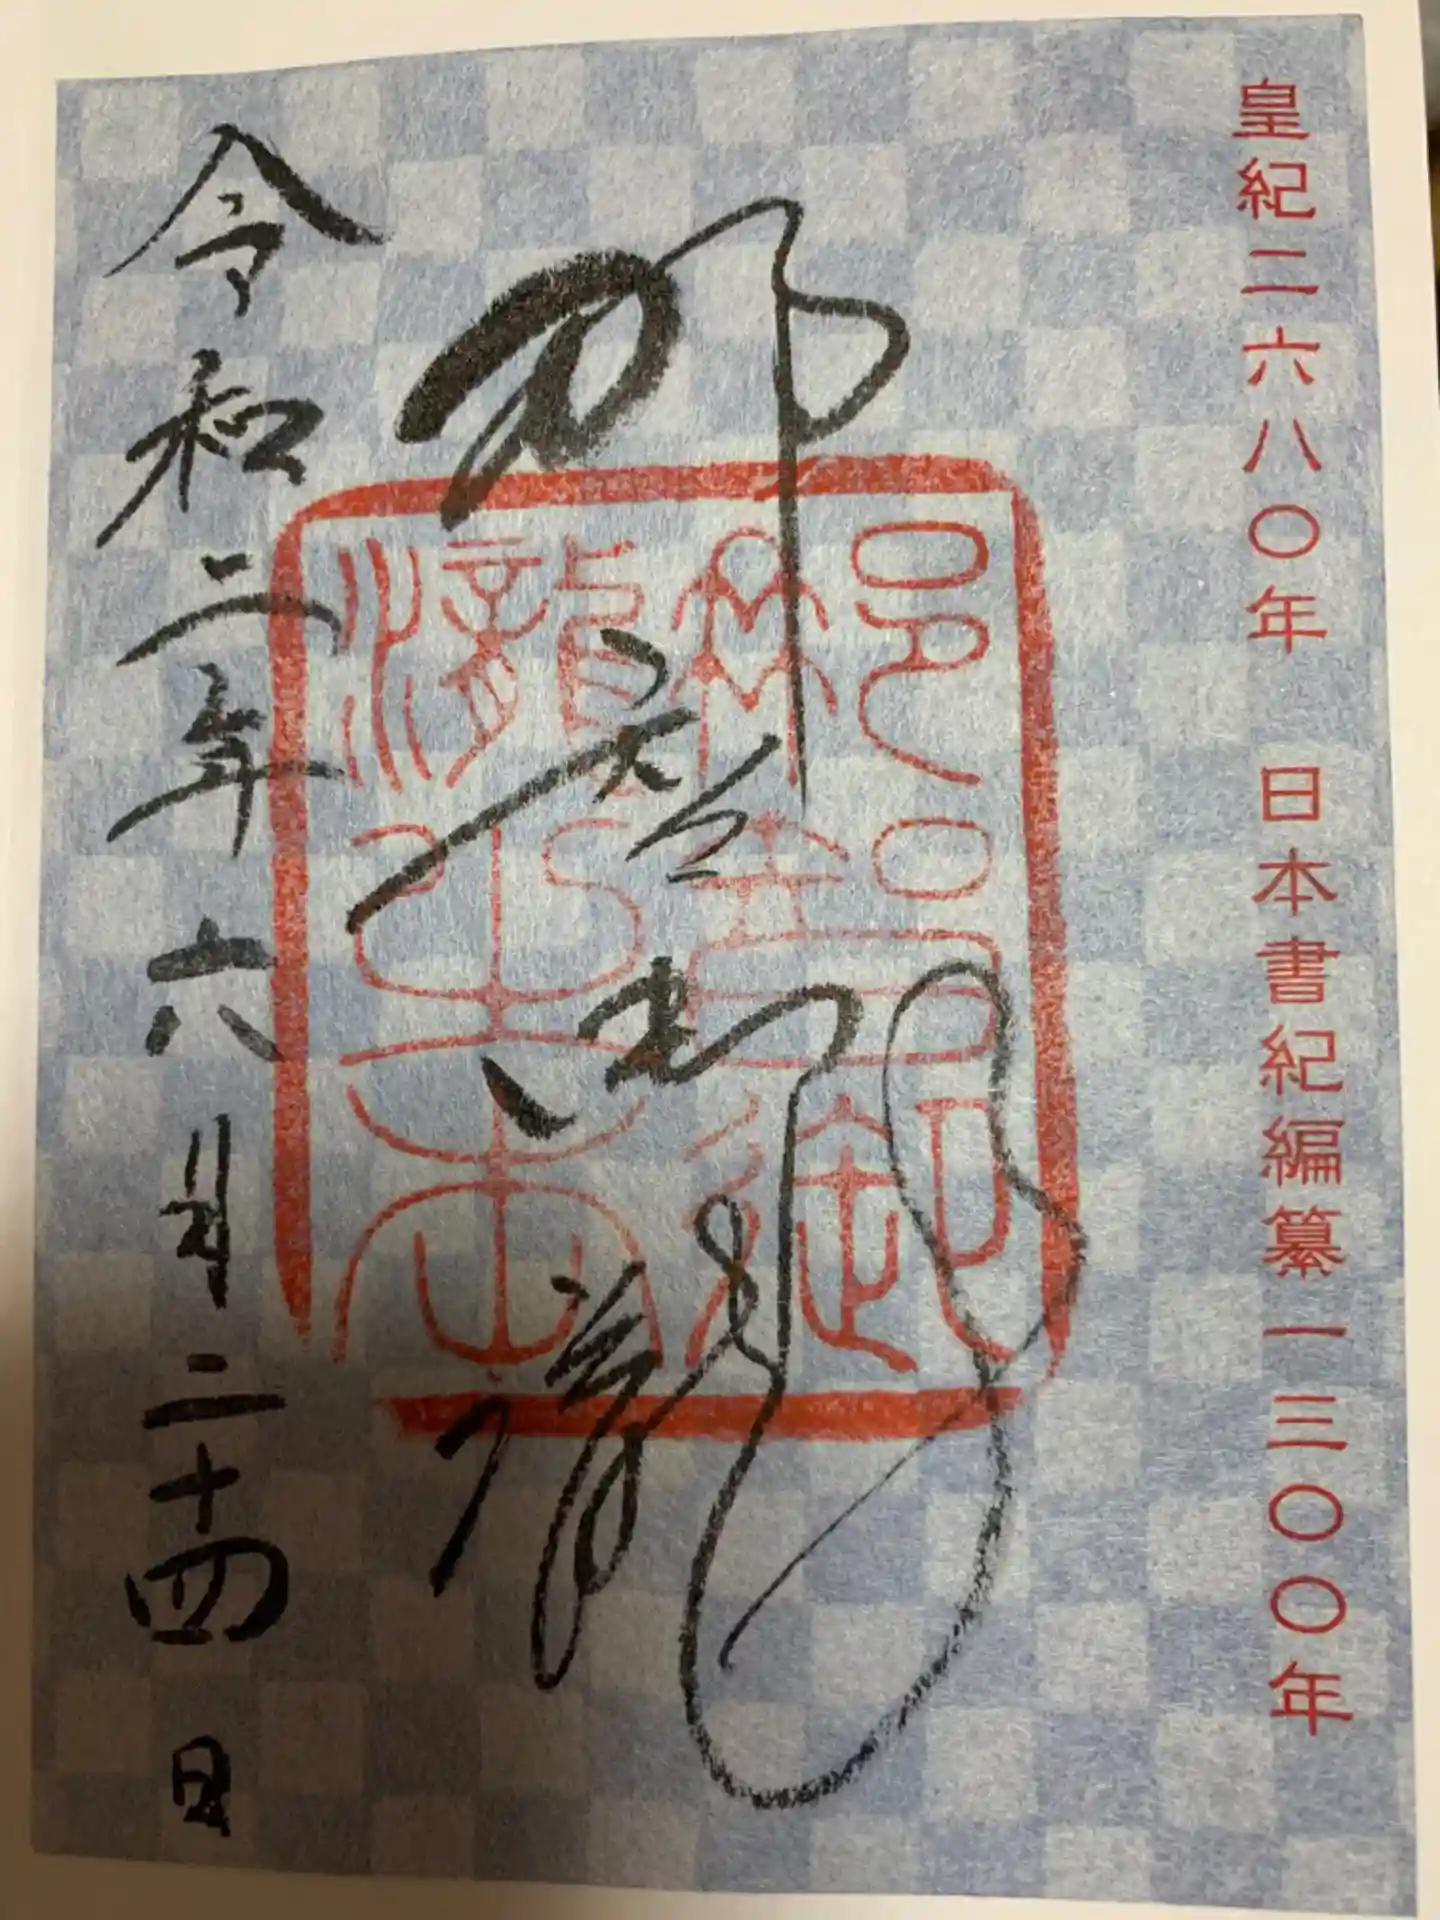 皇紀二六八〇年 日本書紀編纂一三〇〇年
那智御瀧
令和二年六月二十四日